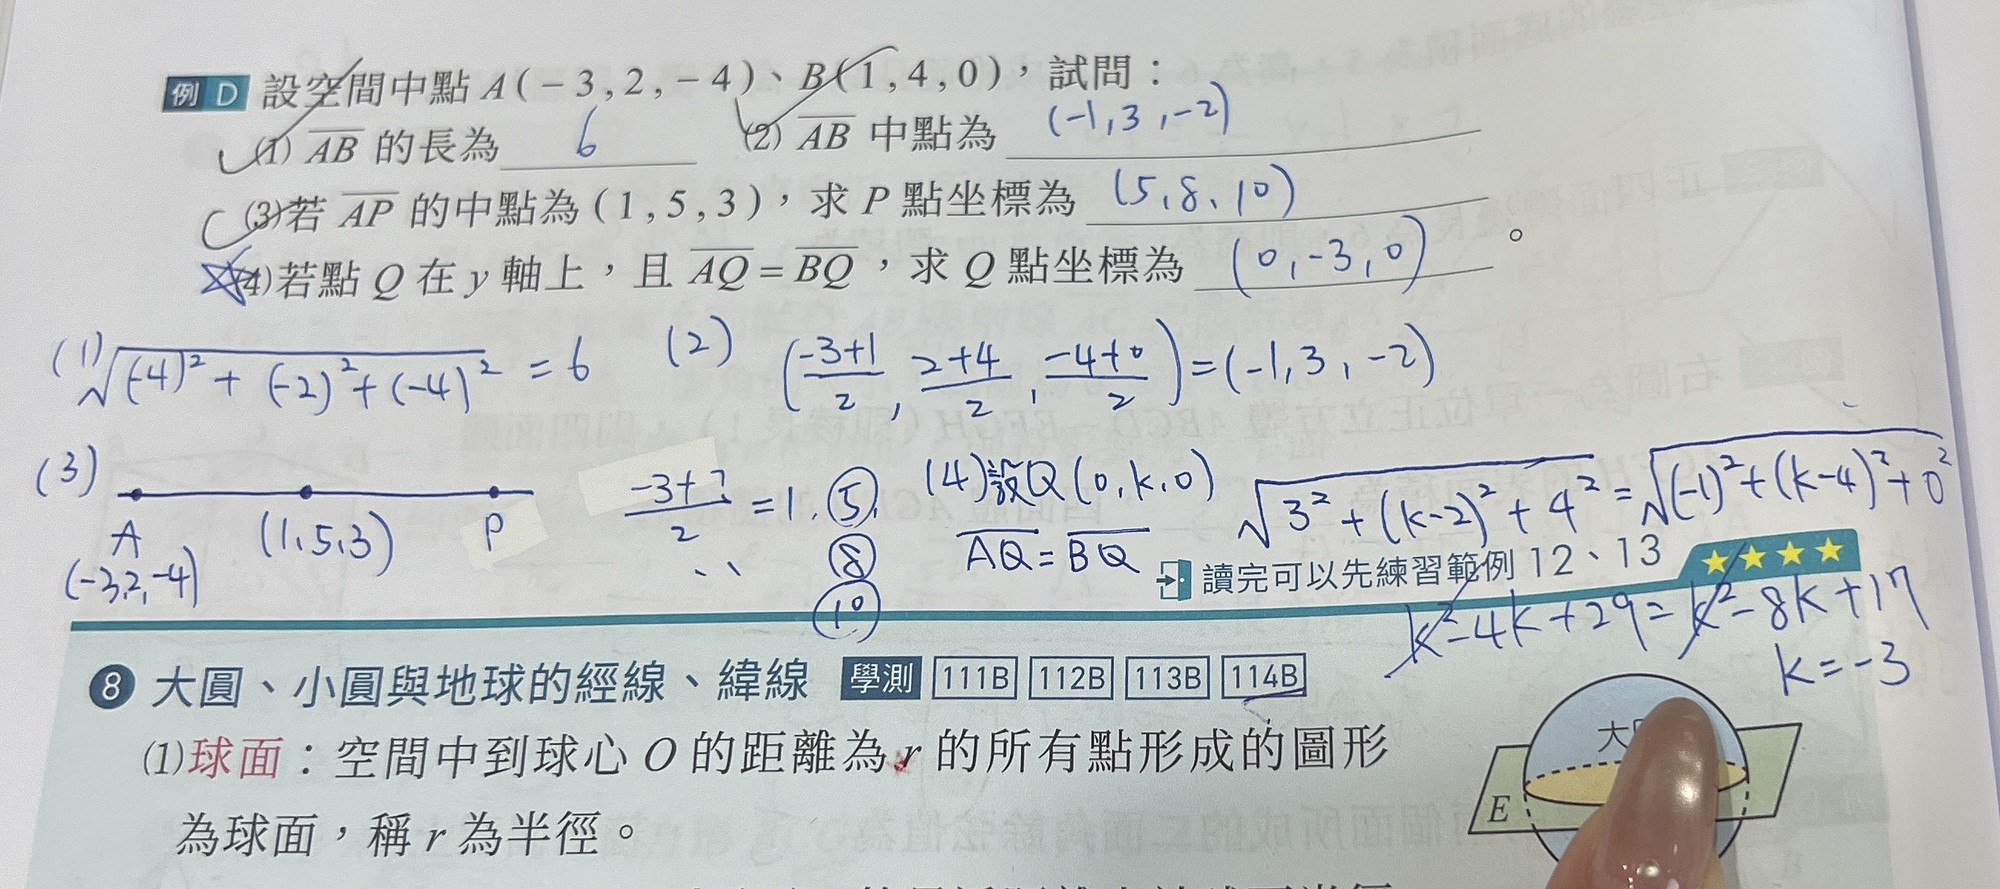 例 D 設空間中點 A(-3,2,-4)、B(1,4,0),試問:
(1) AB 的長為 6 (2) AB 中點為 (-1,3,-2)
(3)若 AP 的中點為(1,5,3),求 P 點坐標為 (5,8,10)
(4)若點 Q 在 y 軸上,且 AQ=BQ,求 Q 點坐標為 (0,-3,0)。
(1) √(-4)²+(-2)²+(-4)² = 6 (2) (-3+1/2, 2+4/2, -4+0/2)=(-1,3,-2)
(3) A (-3,2,-4) (1,5,3) P -3+?/2=1. 5, 8 10
(4)設Q(0,k,0) √3²+(k-2)²+4² = √(-1)²+(k-4)²+0²
AQ=BQ
讀完可以先練習範例 12、13 ★★★★
k²-4k+29=k²-8k+17
k=-3
8 大圓、小圓與地球的經線、緯線 學測 111B 112B 113B 114B
(1)球面:空間中到球心 O 的距離為 r 的所有點形成的圖形
為球面,稱 r 為半徑。
大
E